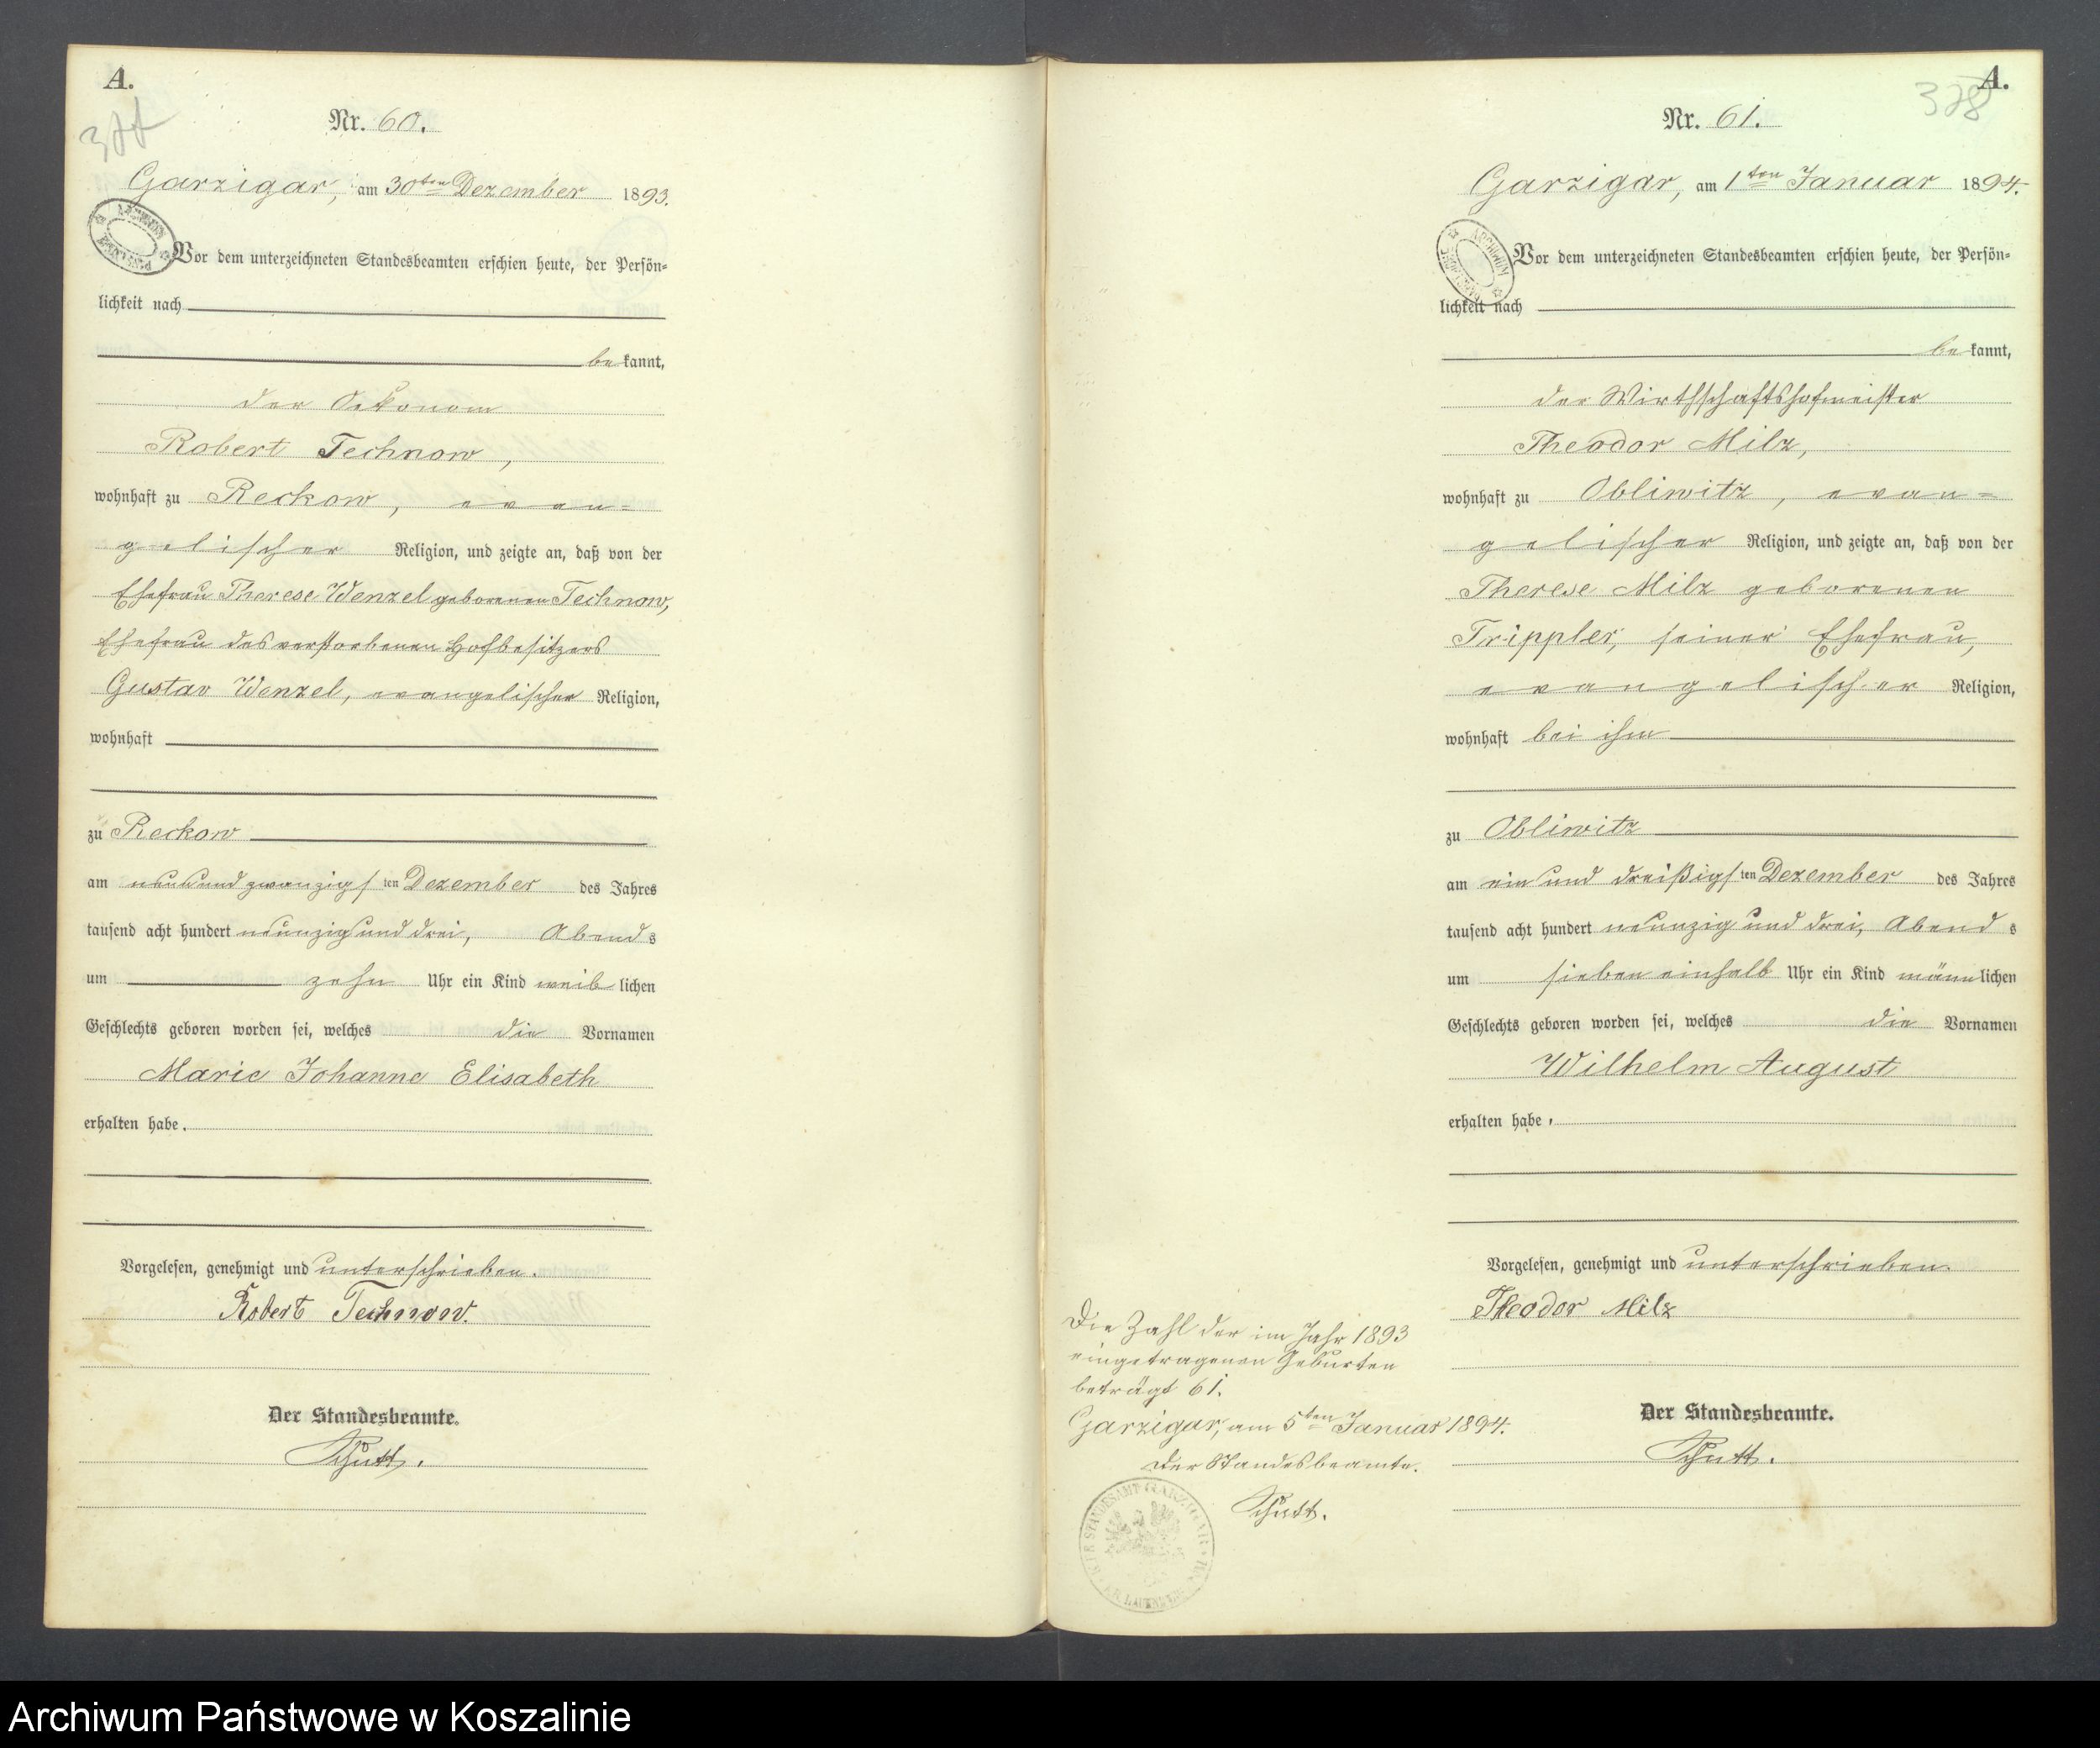 A.
377
Nr. 60.
Garzigar, am 30ten Dezember 1893.
ARCHIWUM PAŃSTWOWE
Vor dem unterzeichneten Standesbeamten erschien heute, der Persön=
lichkeit nach
be kannt,
der Oekonom
Robert Technow,
wohnhaft zu Reckow, evan=
gelischer Religion, und zeigte an, daß von der
Ehefrau Therese Wenzel geborenen Technow,
Ehefrau des verstorbenen Hofbesitzers
Gustav Wenzel, evangelischer Religion,
wohnhaft
zu Reckow
am neunundzwanzigs ten Dezember des Jahres
tausend acht hundert neunzig und drei, Abend s
um zehn Uhr ein Kind weib lichen
Geschlechts geboren worden sei, welches die Vornamen
Marie Johanne Elisabeth
erhalten habe.
Vorgelesen, genehmigt und unterschrieben.
Robert Technow.
Der Standesbeamte.
Schutt.
A.
378
Nr. 61.
Garzigar, am 1ten Januar 1894.
ARCHIWUM PAŃSTWOWE
Vor dem unterzeichneten Standesbeamten erschien heute, der Persön=
lichkeit nach
be kannt,
der Wirthschaftshofmeister
Theodor Milz,
wohnhaft zu Obliwitz, evan=
gelischer Religion, und zeigte an, daß von der
Therese Milz geborenen
Trippler, seiner Ehefrau,
evangelischer Religion,
wohnhaft bei ihm
zu Obliwitz
am ein und dreißigs ten Dezember des Jahres
tausend acht hundert neunzig und drei, Abend s
um sieben einhalb Uhr ein Kind männ lichen
Geschlechts geboren worden sei, welches die Vornamen
Wilhelm August
erhalten habe.
Vorgelesen, genehmigt und unterschrieben.
Theodor Milz
Der Standesbeamte.
Schutt.
Die Zahl der im Jahr 1893
eingetragenen Geburten
beträgt 61.
Garzigar, am 5ten Januar 1894.
Der Standesbeamte.
Schutt.
STANDESAMT GARZIGAR
Archiwum Państwowe w Koszalinie